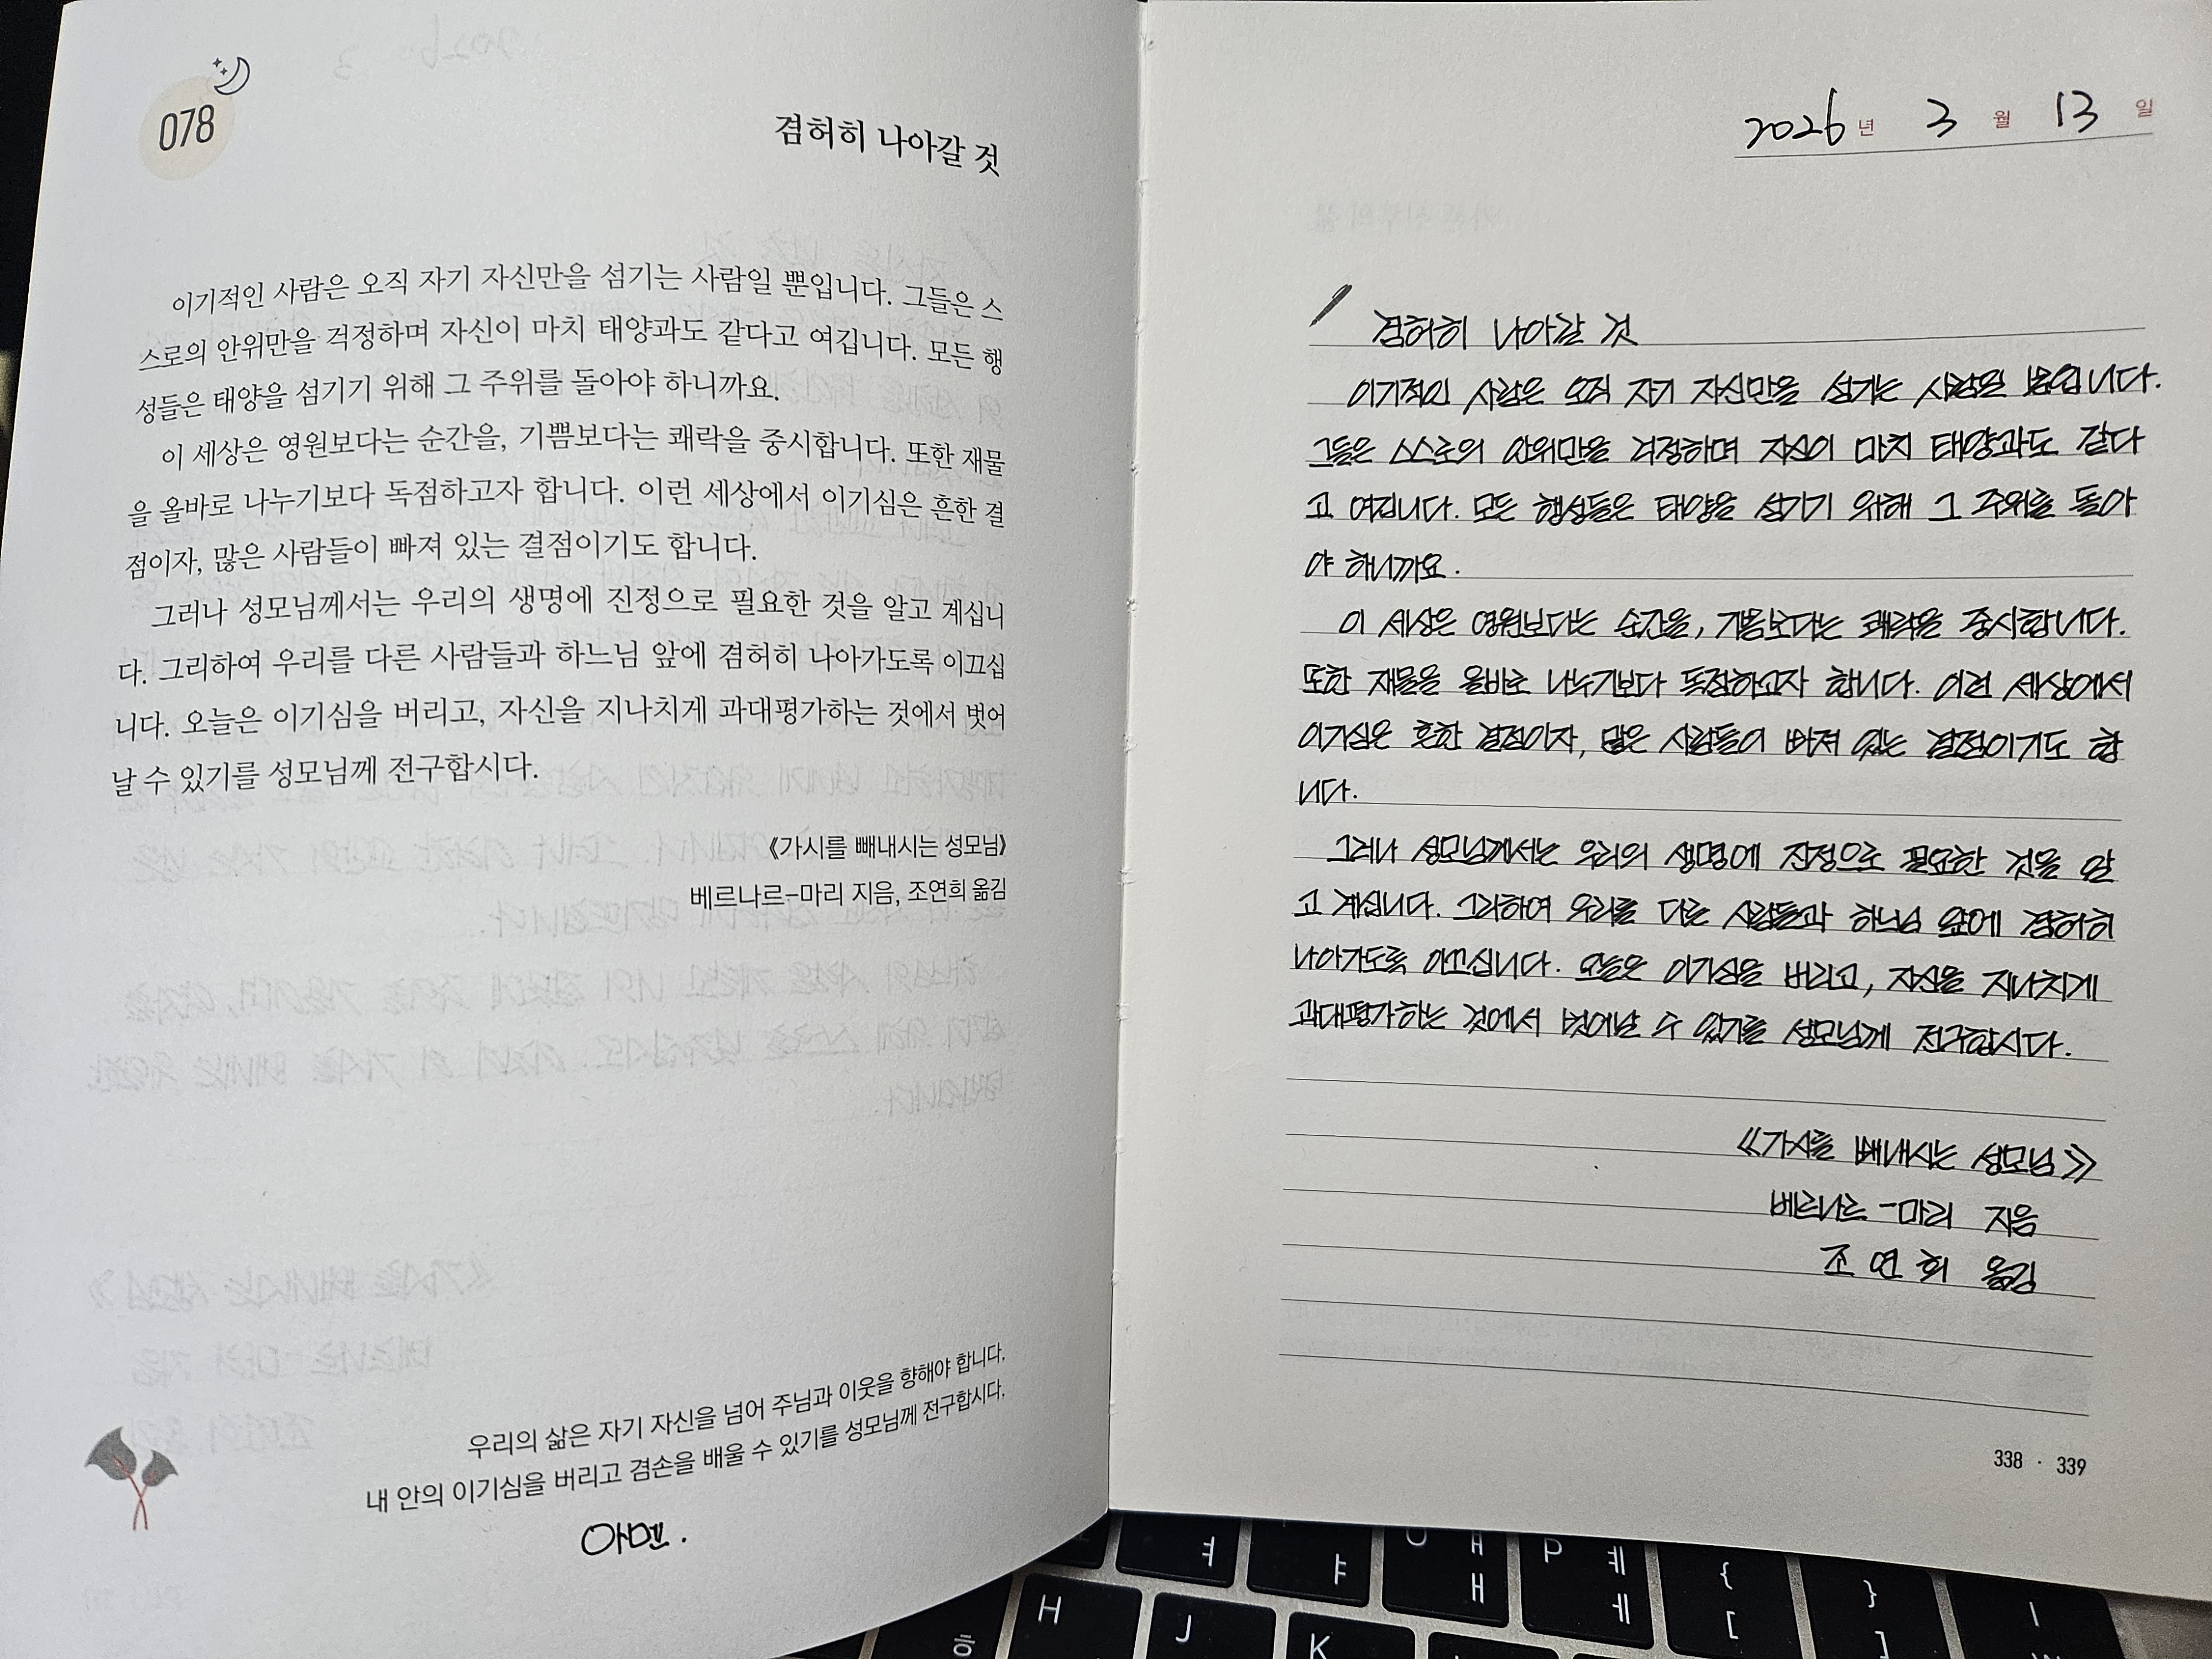 078
겸허히 나아갈 것
이기적인 사람은 오직 자기 자신만을 섬기는 사람일 뿐입니다. 그들은 스
스로의 안위만을 걱정하며 자신이 마치 태양과도 같다고 여깁니다. 모든 행
성들은 태양을 섬기기 위해 그 주위를 돌아야 하니까요.
이 세상은 영원보다는 순간을, 기쁨보다는 쾌락을 중시합니다. 또한 재물
을 올바로 나누기보다 독점하고자 합니다. 이런 세상에서 이기심은 흔한 결
점이자, 많은 사람들이 빠져 있는 결점이기도 합니다.
그러나 성모님께서는 우리의 생명에 진정으로 필요한 것을 알고 계십니
다. 그리하여 우리를 다른 사람들과 하느님 앞에 겸허히 나아가도록 이끄십
니다. 오늘은 이기심을 버리고, 자신을 지나치게 과대평가하는 것에서 벗어
날 수 있기를 성모님께 전구합시다.
《가시를 빼내시는 성모님》
베르나르-마리 지음, 조연희 옮김
우리의 삶은 자기 자신을 넘어 주님과 이웃을 향해야 합니다.
내 안의 이기심을 버리고 겸손을 배울 수 있기를 성모님께 전구합시다.
아멘.
2026년 3월 13일
겸허히 나아갈 것
이기적인 사람은 오직 자기 자신만을 섬기는 사람일 뿐입니다.
그들은 스스로의 안위만을 걱정하며 자신이 마치 태양과도 같다
고 여깁니다. 모든 행성들은 태양을 섬기기 위해 그 주위를 돌아
야 하니까요.
이 세상은 영원보다는 순간을, 기쁨보다는 쾌락을 중시합니다.
또한 재물을 올바로 나누기보다 독점하고자 합니다. 이런 세상에서
이기심은 흔한 결점이자, 많은 사람들이 빠져 있는 결점이기도 합
니다.
그러나 성모님께서는 우리의 생명에 진정으로 필요한 것을 알
고 계십니다. 그리하여 우리를 다른 사람들과 하느님 앞에 겸허히
나아가도록 이끄십니다. 오늘은 이기심을 버리고, 자신을 지나치게
과대평가하는 것에서 벗어날 수 있기를 성모님께 전구합시다.
《가시를 빼내시는 성모님》
베르나르-마리 지음
조연희 옮김
338 · 339
ㅕ ㅑ ㅒ ㅐ P ㅖ ㅔ { [ } ]
ㅎ H J K